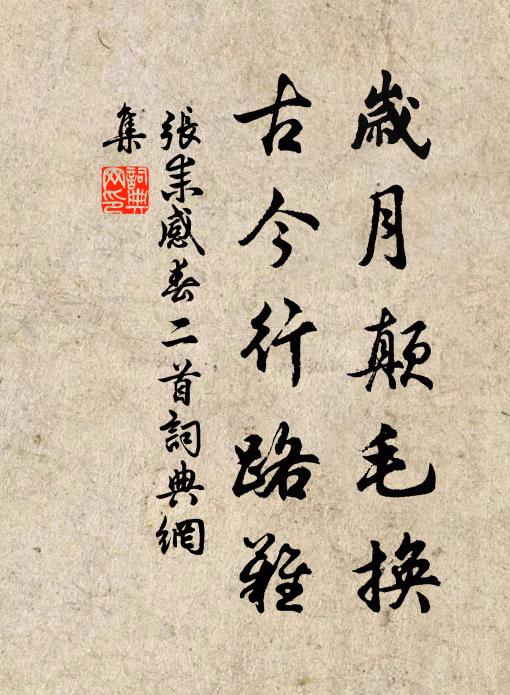 歲月顛毛換
古今行路難
張耒感春二首詞典網
集
詞典網印